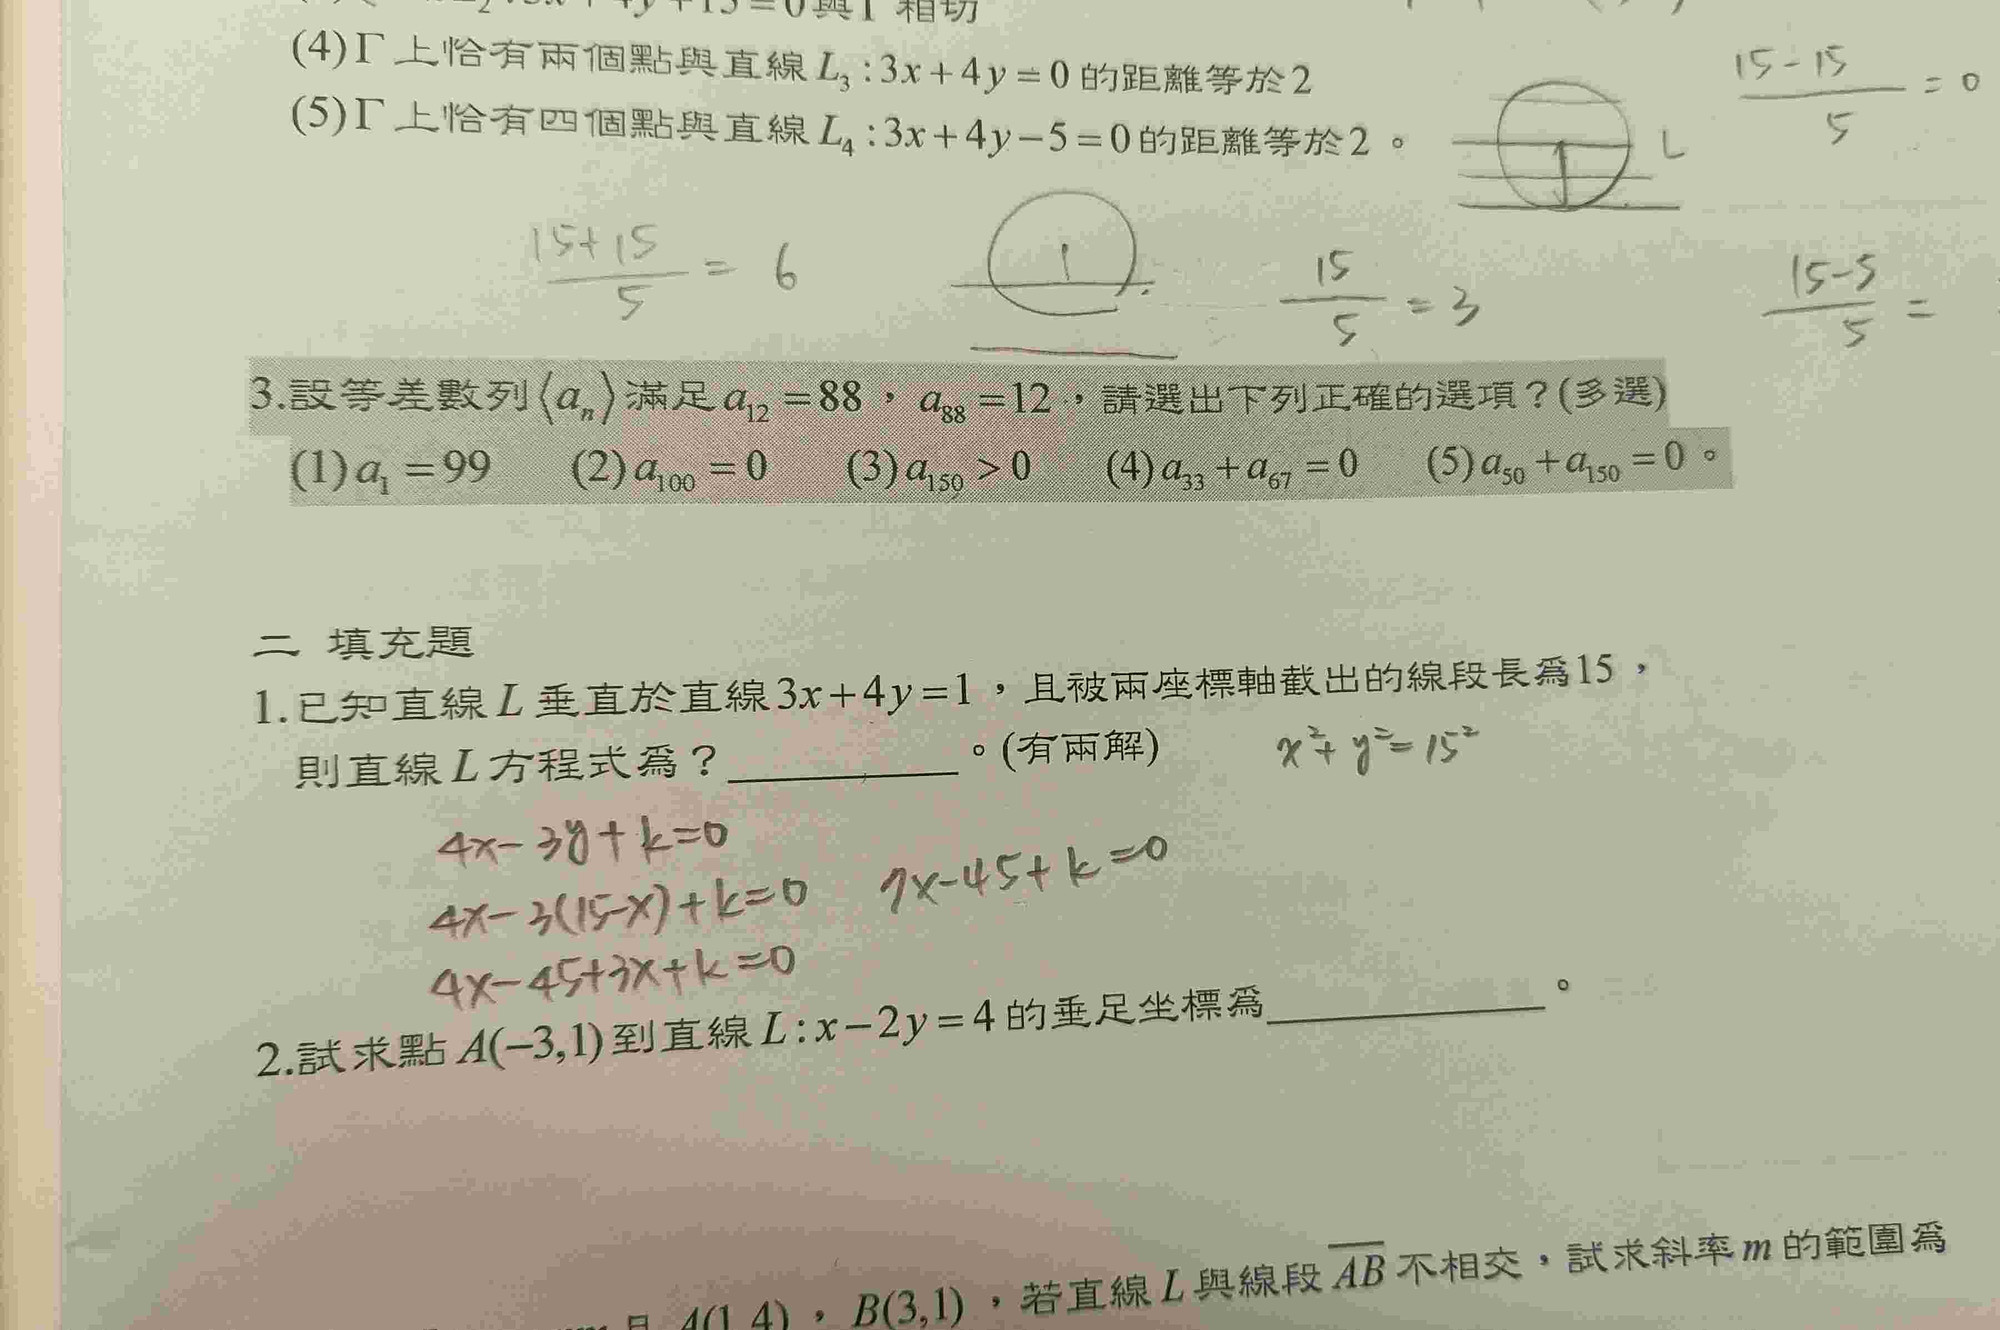 3x+4y+15=0與Γ相切
(4)Γ上恰有兩個點與直線L₃:3x+4y=0的距離等於2
(5)Γ上恰有四個點與直線L₄:3x+4y-5=0的距離等於2。
15-15/5=0
L
15+15/5=6
15/5=3
15-5/5=
3.設等差數列⟨aₙ⟩滿足a₁₂=88,a₈₈=12,請選出下列正確的選項?(多選)
(1)a₁=99 (2)a₁₀₀=0 (3)a₁₅₀>0 (4)a₃₃+a₆₇=0 (5)a₅₀+a₁₅₀=0。
二 填充題
1.已知直線L垂直於直線3x+4y=1,且被兩座標軸截出的線段長為15,
則直線L方程式為?________。(有兩解)
x²+y²=15²
4x-3y+k=0
4x-3(15-x)+k=0 7x-45+k=0
4x-45+3x+k=0
2.試求點A(-3,1)到直線L:x-2y=4的垂足坐標為________。
且A(1,4),B(3,1),若直線L與線段AB不相交,試求斜率m的範圍為